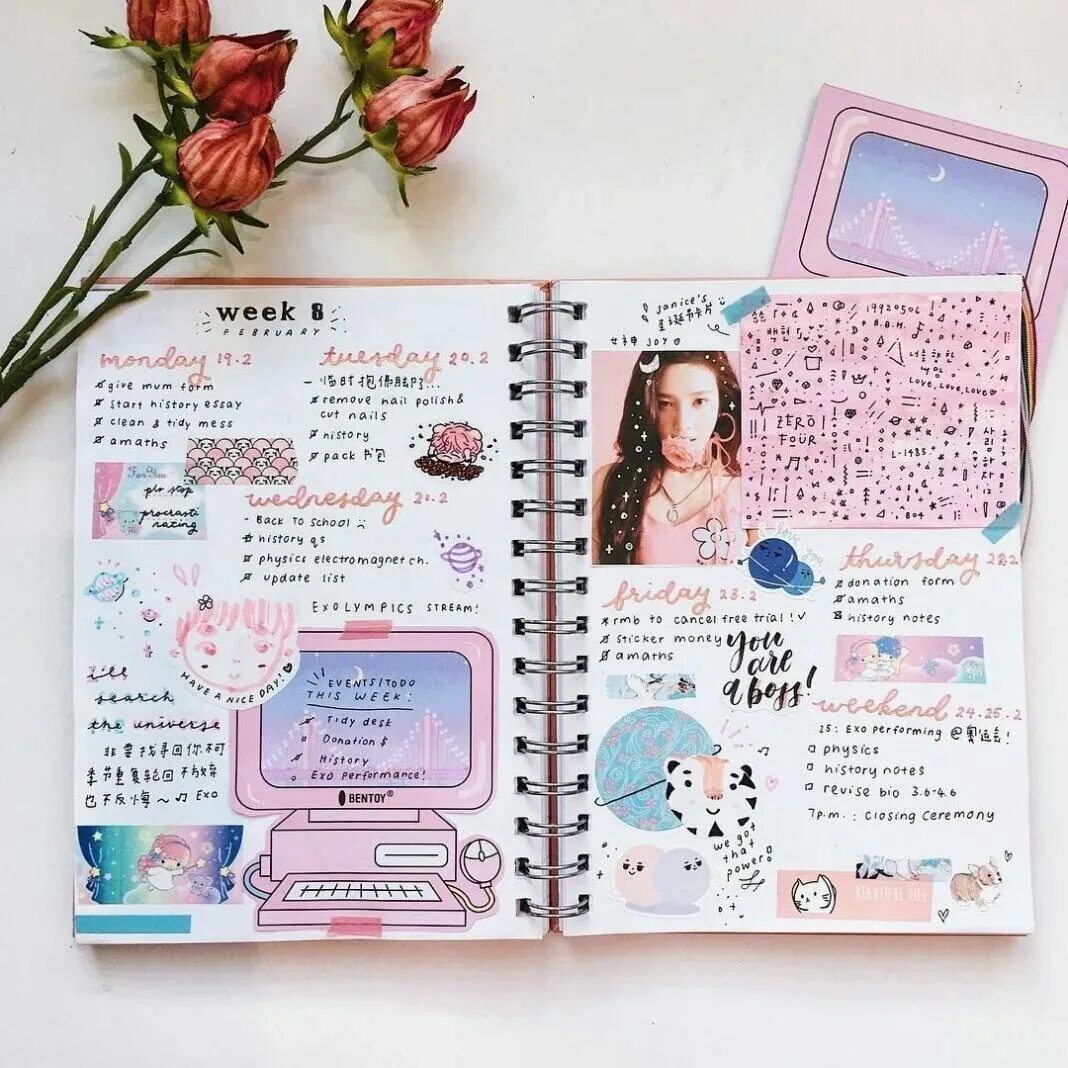 week 8
FEBRUARY
monday 19.2
give mum form
start history essay
clean & tidy mess
amaths
tuesday 20.2
- 临时抱佛脚...
remove nail polish &
cut nails
history
pack 书包
For You
pls stop
procrasti
nating
wednesday 21.2
- Back to school
history qs
physics electromagnet ch.
update list
EXOLYMPICS STREAM!
HAVE A NICE DAY!
i'll
search
the universe
非要找寻回你不可
季节重复轮回 不放弃
也不反悔 ~ ♫ Exo
EVENTS/TODO
THIS WEEK:
Tidy desk
Donation $
History
Exo performance!
BENTOY®
Janice's
圣诞卡片
女神 JOY
19920506
B.B.H.
백현
너를 향한
LOVE, LOVE, LOVE
ZERO
FOUR
L-1485
사
랑
하
자
B04
I love you
thursday 22.2
donation form
amaths
history notes
friday 23.2
rmb to cancel free trial!
sticker money
amaths
you
are
a boss!
weekend 24-25.2
25: Exo performing @奥运会!
physics
history notes
revise bio 3.6-4.6
7p.m.: Closing Ceremony
we got
that
power
BEAUTIFUL LIFE